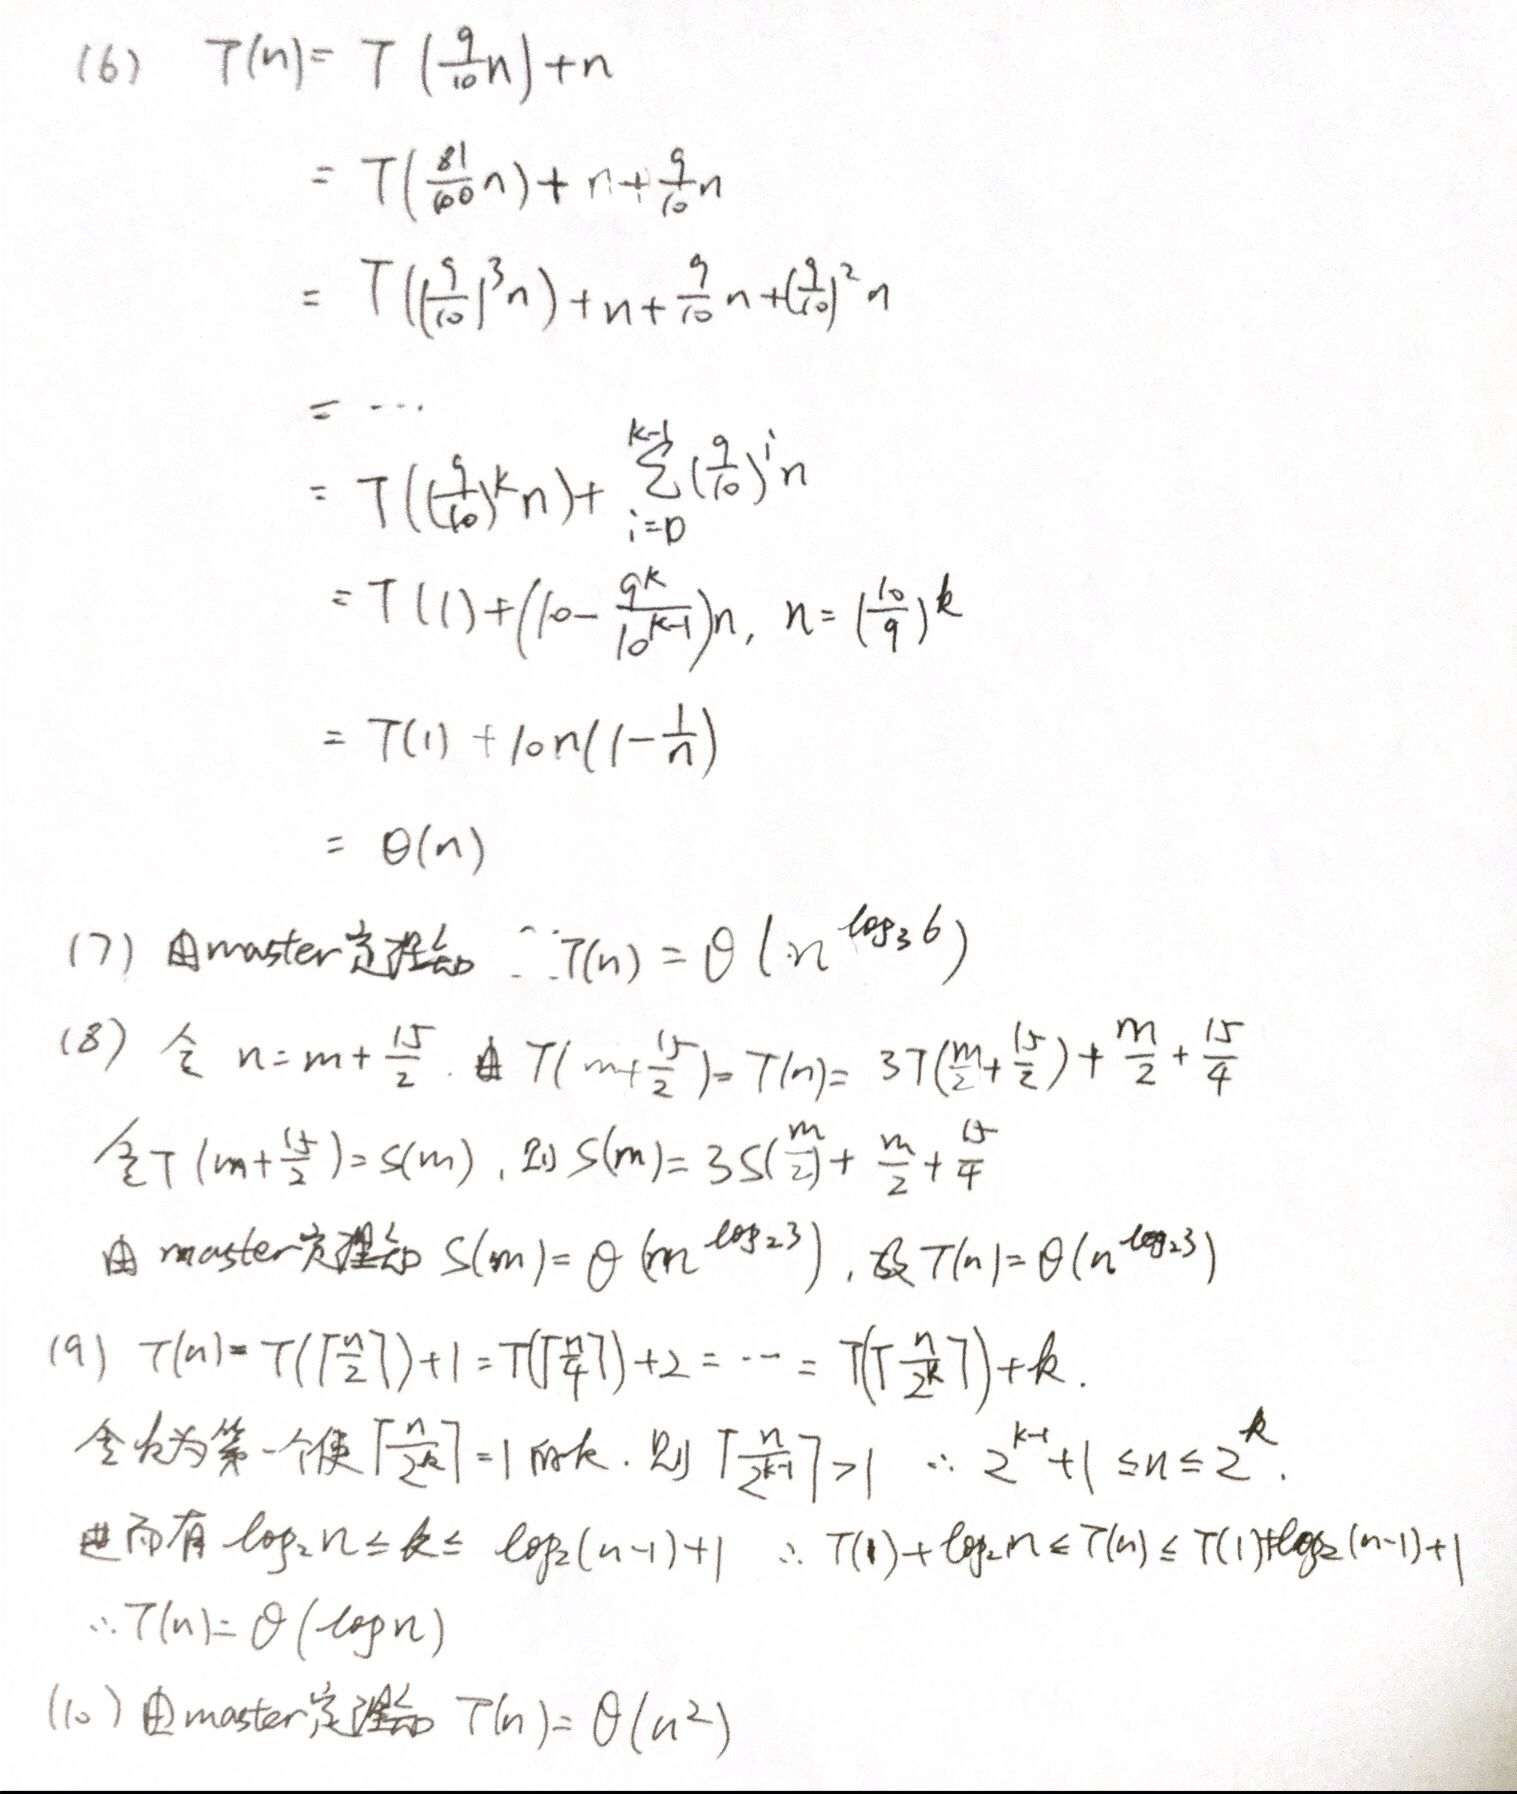 (6) T(n) = T(9/10 n) + n
= T(81/100 n) + n + 9/10 n
= T((9/10)^3 n) + n + 9/10 n + (9/10)^2 n
= ...
= T((9/10)^k n) + ∑_{i=0}^{k-1} (9/10)^i n
= T(1) + (10 - 9^k/10^{k-1})n, n = (10/9)^k
= T(1) + 10n(1 - 1/n)
= θ(n)
(7) 由master定理知 T(n) = θ(n^{log₃6})
(8) 令 n = m + 15/2. 由 T(m + 15/2) = T(n) = 3T(m/2 + 15/2) + m/2 + 15/4
令T(m + 15/2) = S(m), 则 S(m) = 3S(m/2) + m/2 + 15/4
由master定理知 S(m) = θ(m^{log₂3}), 故T(n) = θ(n^{log₂3})
(9) T(n) = T(⌈n/2⌉) + 1 = T(⌈n/4⌉) + 2 = ... = T(⌈n/2^k⌉) + k.
令k为第一个使⌈n/2^k⌉ = 1的k. 则⌈n/2^{k-1}⌉ > 1 ∴ 2^{k-1} + 1 ≤ n ≤ 2^k.
进而有 log₂n ≤ k ≤ log₂(n-1) + 1 ∴ T(1) + log₂n ≤ T(n) ≤ T(1) + log₂(n-1) + 1
∴ T(n) = θ(log n)
(10) 由master定理知 T(n) = θ(n²)